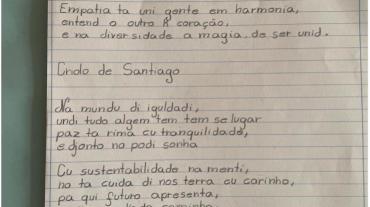 Empatia ta uni gente em harmonia,
entend o outro é coração,
e na diversidade a magia de ser unid.
Criolo de Santiago
Na mundu di iguldadi,
undi tudo algem tem tem se lugar
paz ta rima cu tranquilidade,
e djonto no podi sonha
Cu sustentabilidade na menti,
no ta cuida di nos terra cu carinho,
pa qui futuro apresenta,